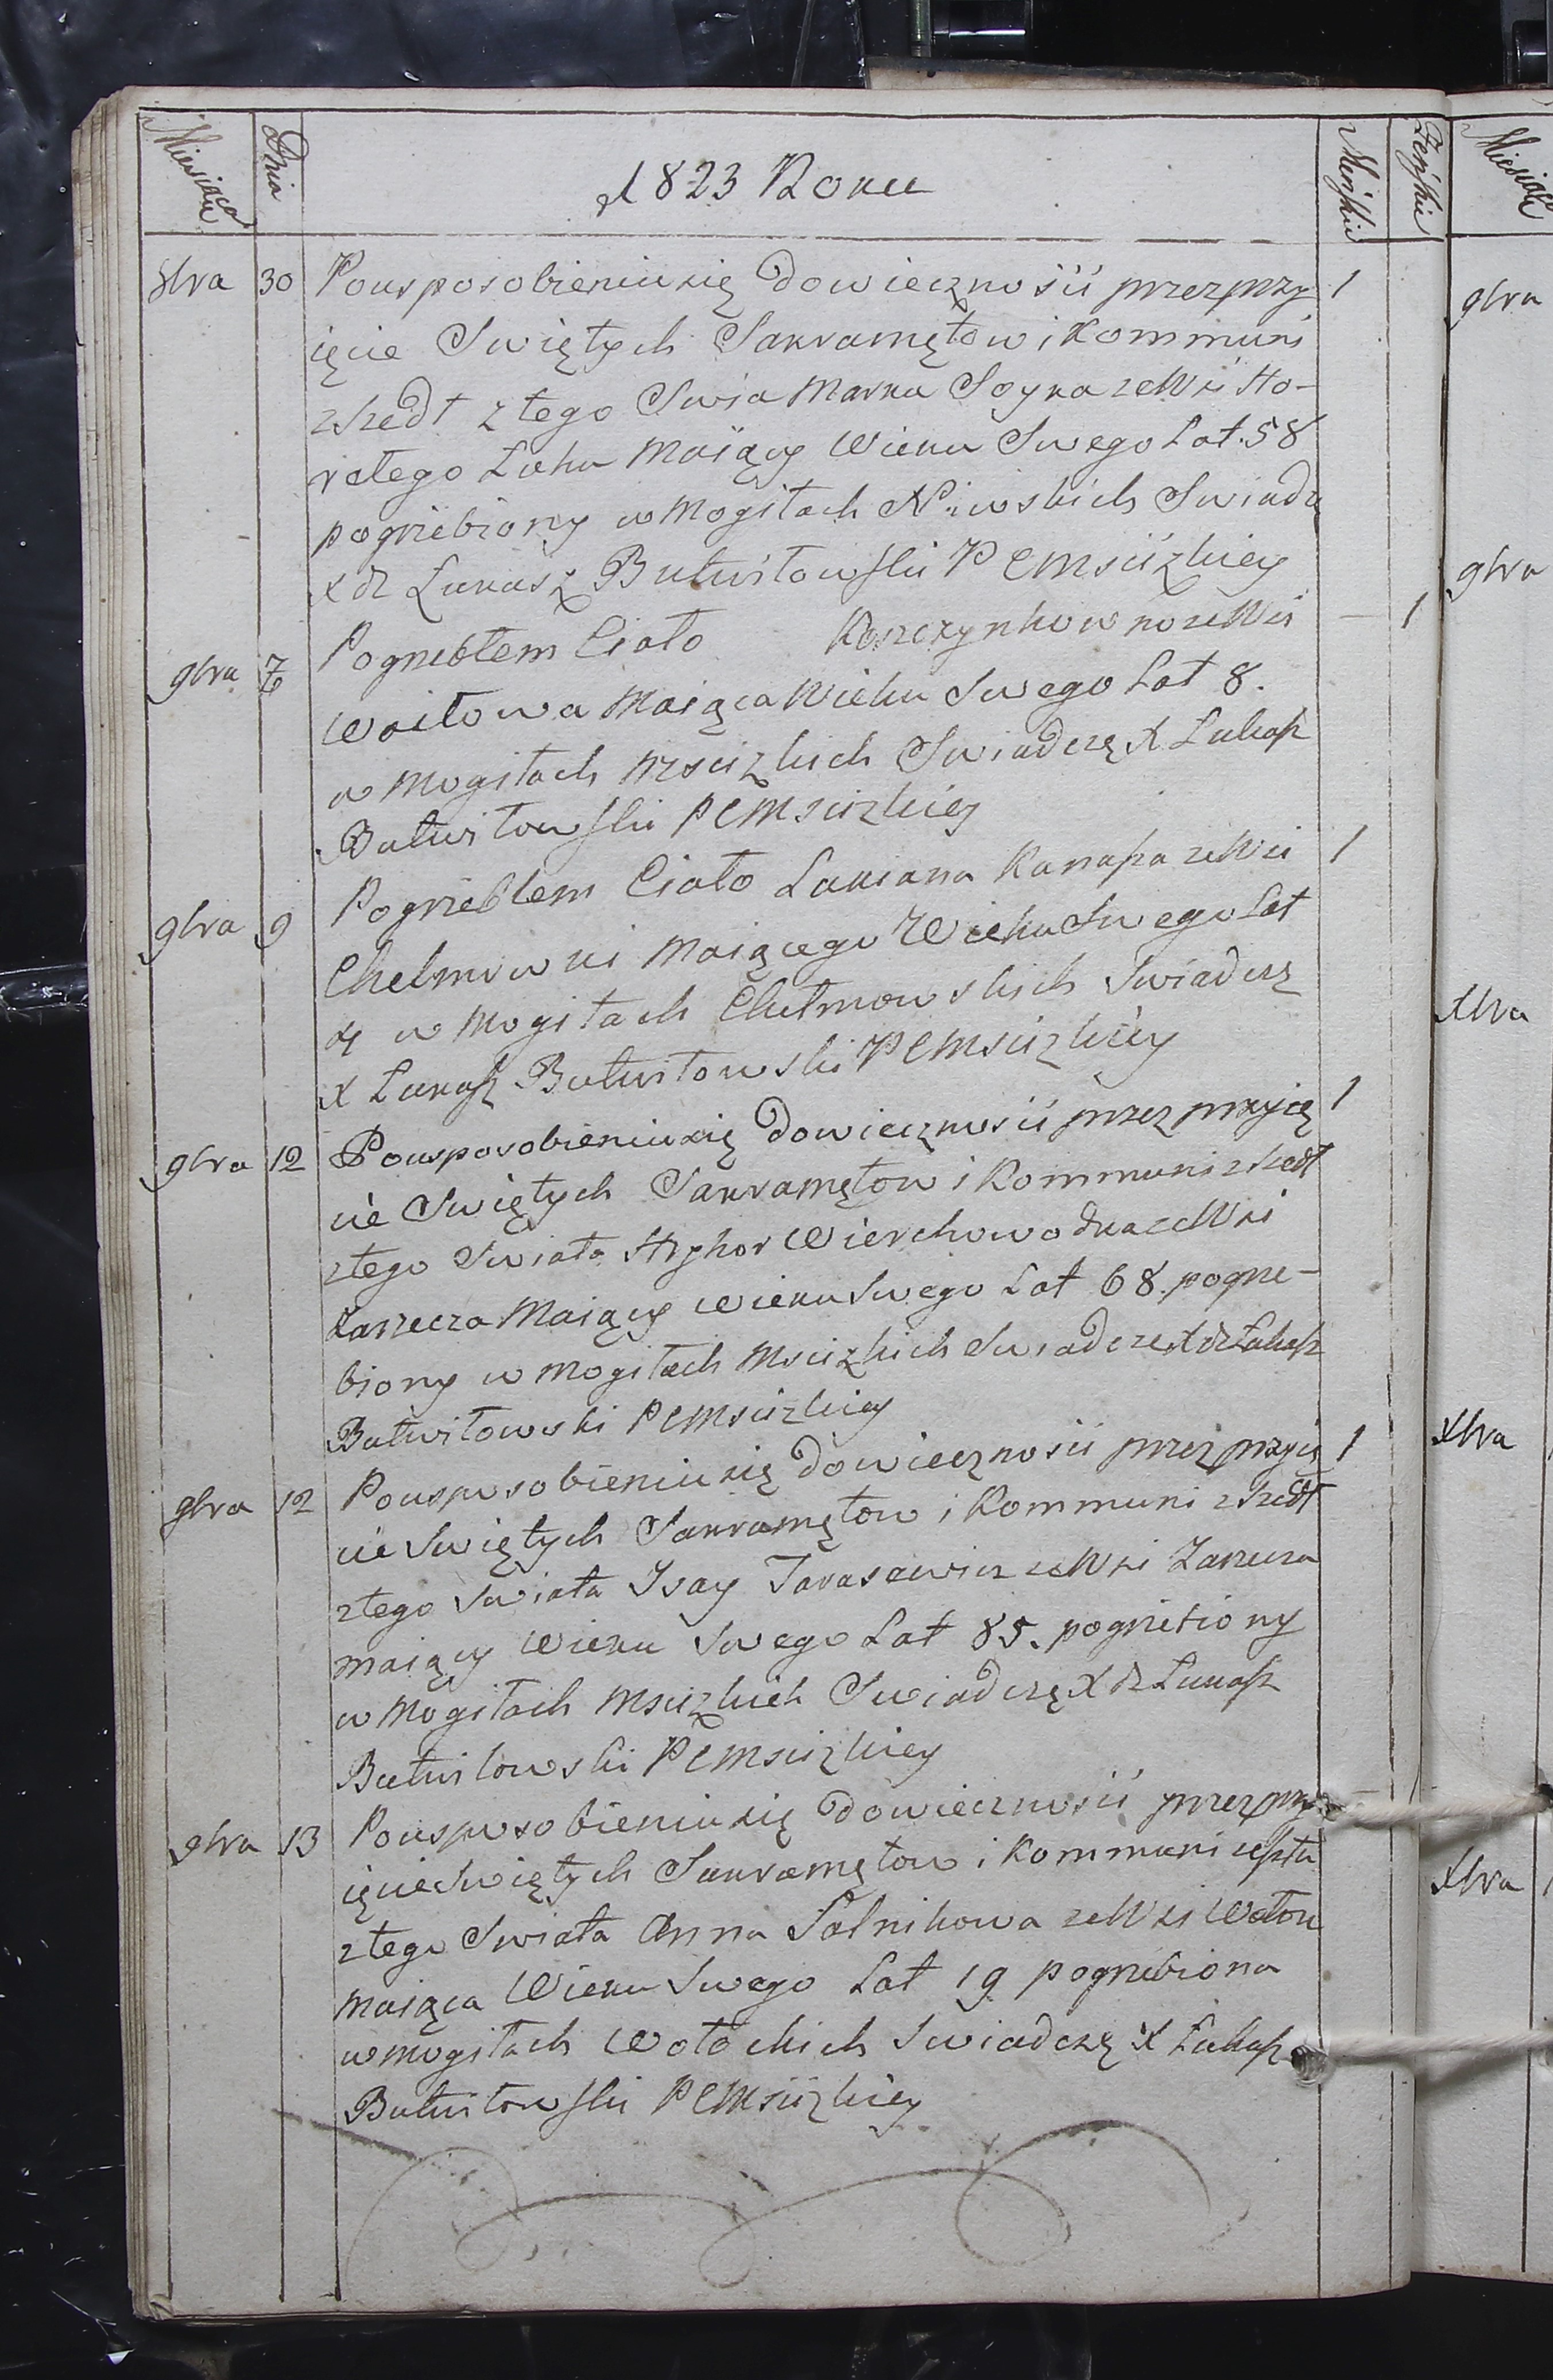 Miesiąca Dnia 1823 Roku Męzkie Zeńskie
8bra 30 Pousposobieniu się do wieczności przez przy 1
ięcie Swiętych Sakramętow i Kommuni
zszedł z tego Swia Marko Soyka ze Wsi Ho-
rełego Luhu Maiący Wieku Swego Lat. 58
pogrzebiony w Mogiłach Niwskich Swiadc
X dz Łukasz Butwiłowski P C Mscizkiey
9bra 7 Pogrzebłem Ciało Koszczynkowno ze Wsi - 1
Woiłowa Maiąca Wieku Swego Lat 8.
w Mogiłach Mscizkich Swiadczę X Łukasz
Butwiłowski P C Mscizkiey
9bra 9 Pogrzebłem Ciało Łukiana Kanasza ze Wsi 1
Chełmowki Maiącego Wieku Swego Lat
4 w Mogiłach Chełmowskich Swiadczę
X Łukasz Butwiłowski P C Mscizkiey
9bra 12 Pousposobieniu się do wieczności przez przyię 1
cie Swiętych Sakramętow i Kommuni zszedł
z tego Swiata Hryhor Wierchowodka ze Wsi
Zarzecza Maiący Wieku Swego Lat 68. pogrze-
biony w Mogiłach Mscizkich Swiadcze X dz Łukasz
Butwiłowski P C Mscizkiey
9bra 12 Pousposobieniu się do wieczności przez przyię 1
cie Swiętych Sakramętow i Kommuni zszedł
z tego Swiata Isay Tarasewicz ze Wsi Zarzecza
maiący Wieku Swego Lat 85. pogrzebiony
w Mogiłach Mscizkich Swiadczę X dz Łukasz
Butwiłowski P C Mscizkiey
9bra 13 Pousposobieniu się do wieczności przez przy
ięcie Swiętych Sakramętow i Kommuni zeszła
z tego Swiata Anna Solnikowa ze Wsi Wołow
maiąca Wieku Swego Lat 19 pogrzebiona
w mogiłach Wołockich Swiadczę X Łukasz
Butwiłowski P C Mscizkiey
Miesiąca
9bra
9bra
Xbra
Xbra
Xbra